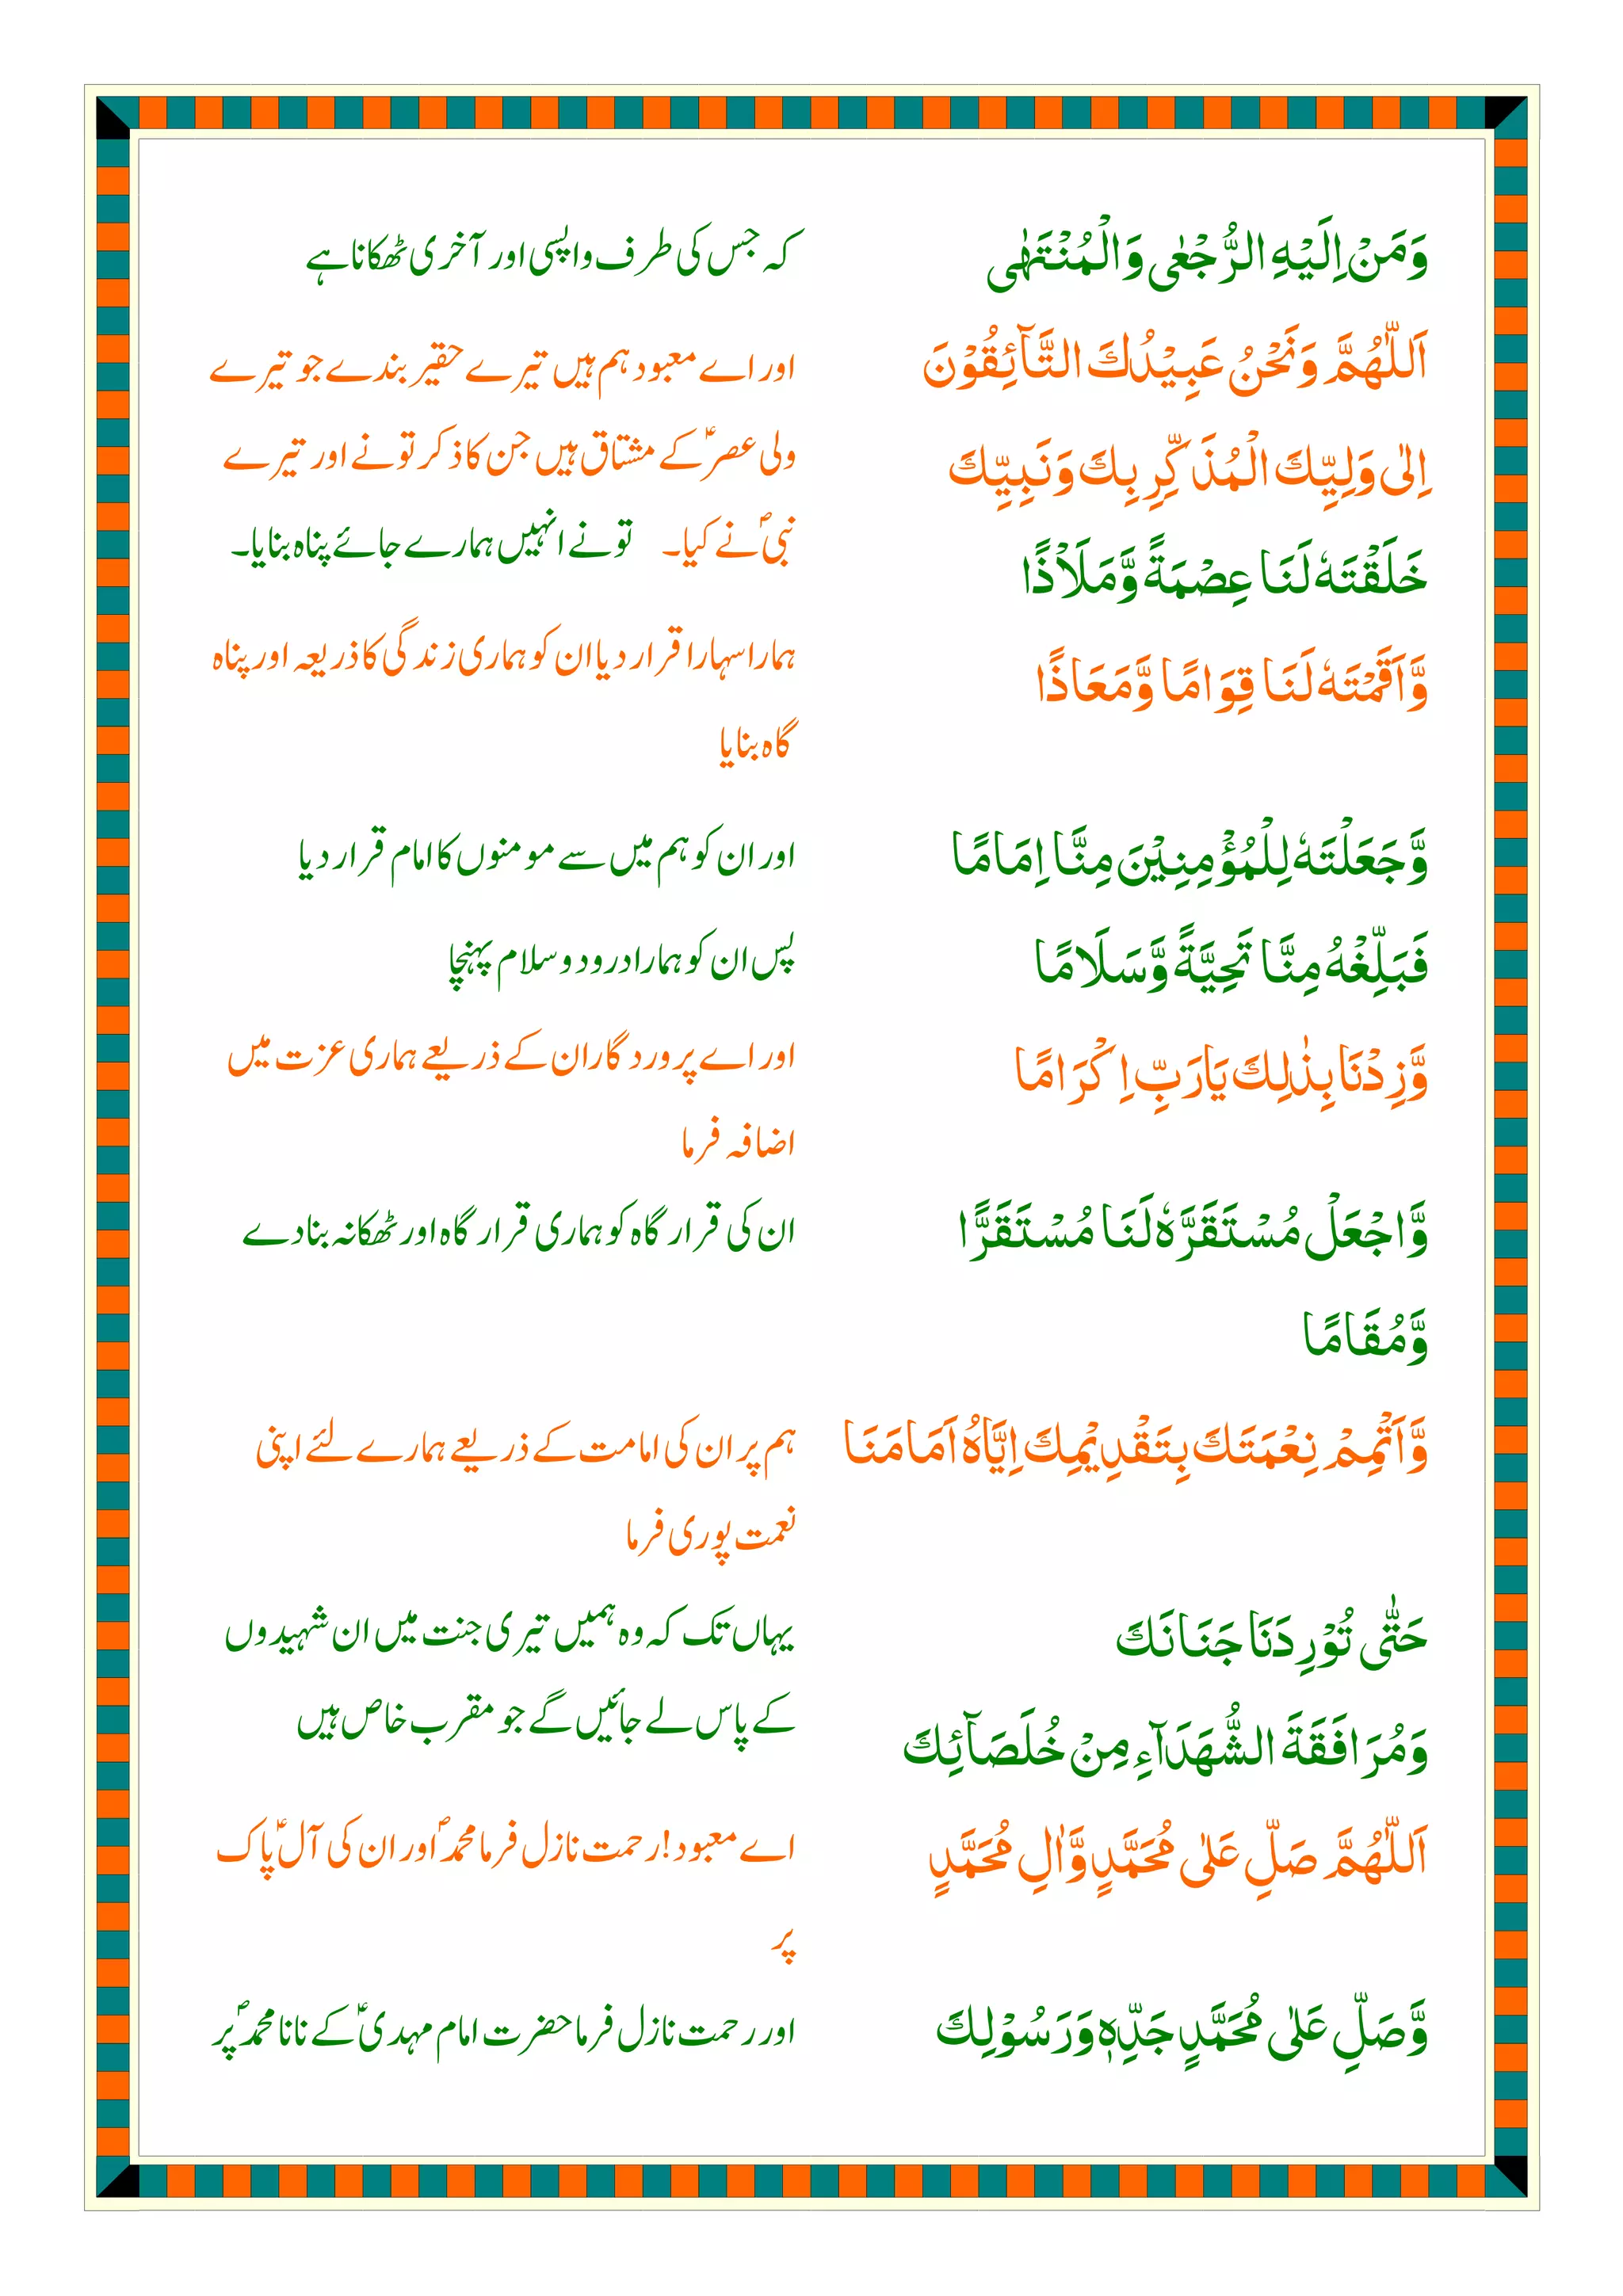 وَمَنْ اِلَيْهِ الرُّجْعٰى وَالْمُنْتَهٰى
کہ جس کی طرف واپسی اور آخری ٹھکانا ہے
اَللّٰهُمَّ وَنَحْنُ عَبِيْدُكَ التَّآئِقُوْنَ
اور اے معبود ہم ہیں تیرے حقیر بندے جو تیرے
اِلٰى وَلِيِّكَ الْمُذَكِّرِ بِكَ وَنَبِيِّكَ
ولی عصرؑ کے مشتاق ہیں جن کا ذکر تونے اور تیرے
خَلَقْتَهٗ لَنَا عِصْمَةً وَّمَلَاْذًا
نبیؐ نے ایک۔ تونے انہیں ہمارے جائے پناہ بنایا۔
وَّاَقَمْتَهٗ لَنَا قِوَامًا وَّمَعَاذًا
ہمارا سہارا قرار دیا ان کو ہماری زندگی کا ذریعہ اور پناہ
گاہ بنایا
وَّجَعَلْتَهٗ لِلْمُؤْمِنِيْنَ مِنَّا اِمَامًا
اور ان کو ہم میں سے مومنوں کا امام قرار دیا
فَبَلِّغْهُ مِنَّا تَحِيَّةً وَّسَلَامًا
پس ان کو ہمارا درود و سلام پہنچا
وَّزِدْنَا بِذٰلِكَ يَارَبِّ اِكْرَامًا
اور اے پروردگار ان کے ذریعے ہماری عزت میں
اضافہ فرما
وَّاجْعَلْ مُسْتَقَرَّهٗ لَنَا مُسْتَقَرًّا
ان کی قرار گاہ کو ہماری قرار گاہ اور ٹھکانہ بنادے
وَّمُقَامًا
وَّاَتْمِمْ نِعْمَتَكَ بِتَقْدِيْمِكَ اِيَّاهُ اَمَامَنَا
ہم پر ان کی امامت کے ذریعے ہمارے لئے اپنی
نعمت پوری فرما
حَتّٰى تُوْرِدَنَا جَنَانَكَ
یہاں تک کہ وہ ہمیں تیری جنت میں ان شہیدوں
وَمُرَافَقَةَ الشُّهَدَآءِ مِنْ خُلَصَآئِكَ
کے پاس لے جائیں گے جو مقرب خاص ہیں
اَللّٰهُمَّ صَلِّ عَلٰى مُحَمَّدٍ وَّاٰلِ مُحَمَّدٍ
اے معبود! رحمت نازل فرما محمدؐ اور ان کی آلؑ پاک
پر
وَّصَلِّ عَلٰى مُحَمَّدٍ جَدِّهٖ وَرَسُوْلِكَ
اور رحمت نازل فرما حضرت امام مہدیؑ کے نانا محمدؐ پر